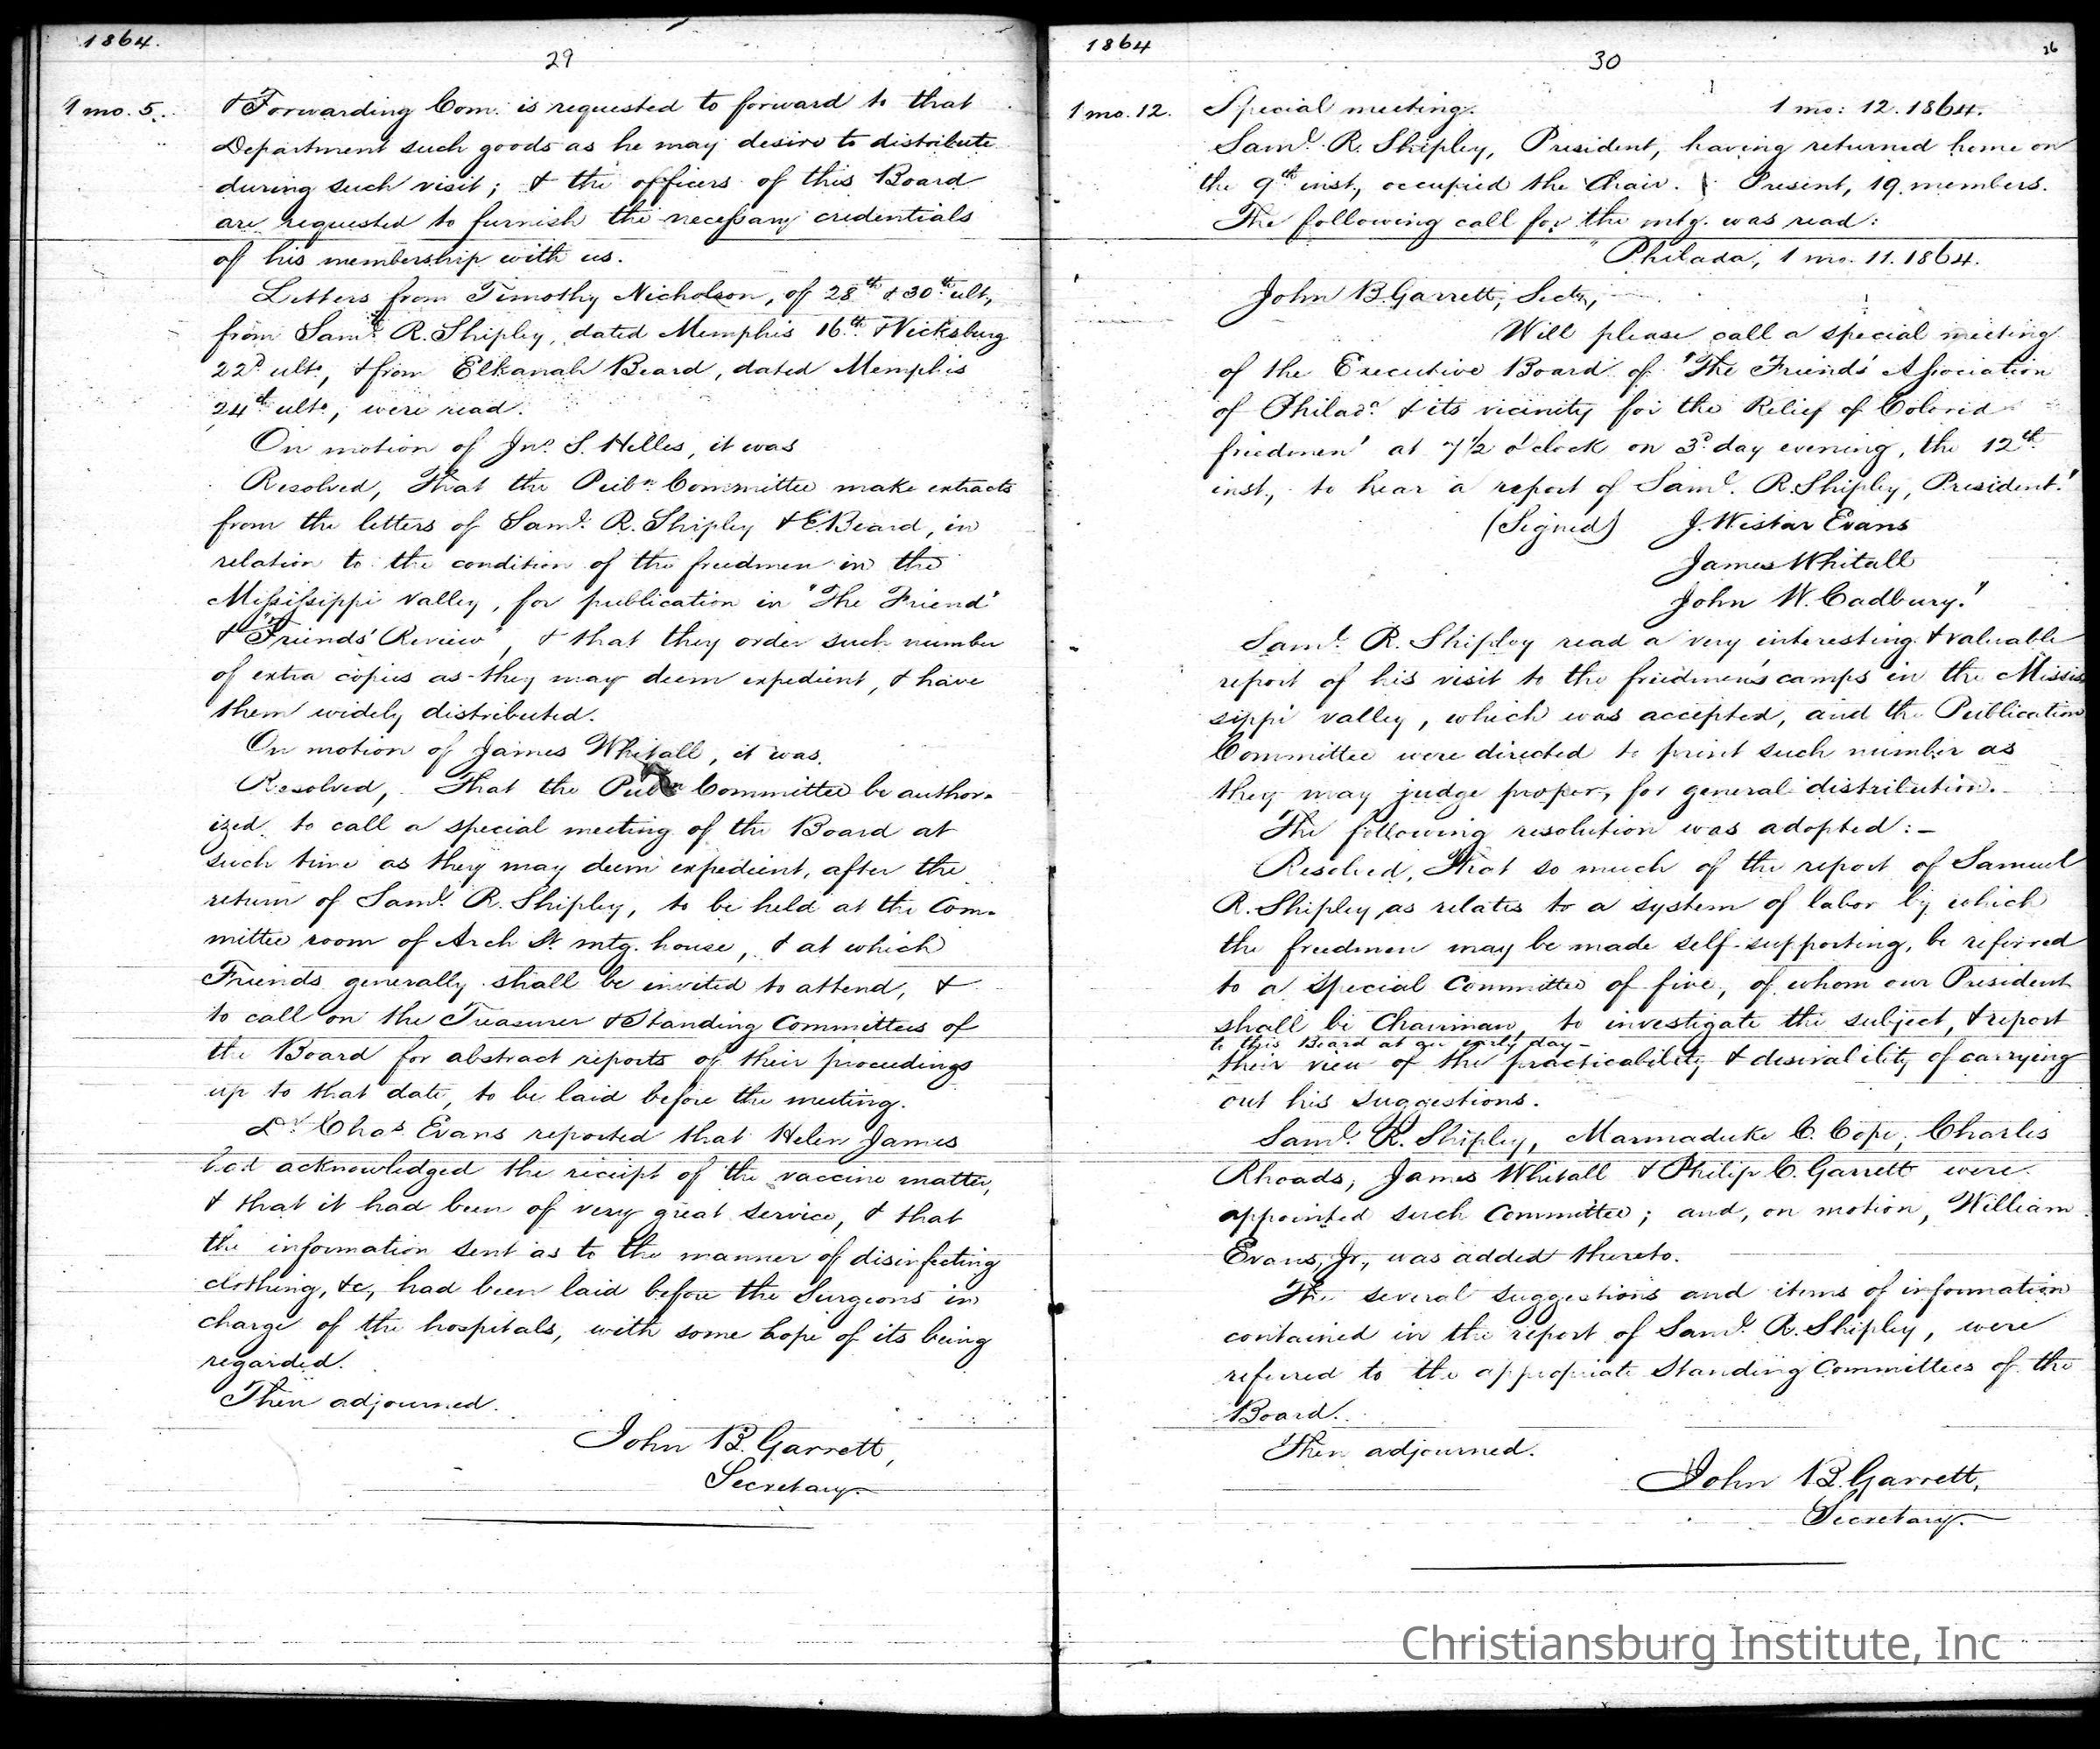 1864.
29
1 mo. 5.
& Forwarding Com. is requested to forward to that
Department such goods as he may desire to distribute
during such visit; & the officers of this Board
are requested to furnish the necessary credentials
of his membership with us.
Letters from Timothy Nicholson, of 28th & 30th ult,
from Saml. R. Shipley, dated Memphis 16th & Vicksburg
22d ulto, & from Elkanah Beard, dated Memphis
24th ulto, were read.
On motion of Jno. S. Hilles, it was
Resolved, That the Pubn. Committee make extracts
from the letters of Saml. R. Shipley & E. Beard, in
relation to the condition of the freedmen in the
Mississippi Valley, for publication in "The Friend"
& "Friends' Review", & that they order such number
of extra copies as they may deem expedient, & have
them widely distributed.
On motion of James Whitall, it was
Resolved, That the Pubn Committee be author-
ized to call a special meeting of the Board at
such time as they may deem expedient, after the
return of Saml. R. Shipley, to be held at the Com-
mittee room of Arch St. mtg. house, & at which
Friends generally shall be invited to attend, &
to call on the Treasurer & Standing Committees of
the Board for abstract reports of their proceedings
up to that date, to be laid before the meeting.
Dr. Chas. Evans reported that Helen James
had acknowledged the receipt of the vaccine matter,
& that it had been of very great service, & that
the information sent as to the manner of disinfecting
clothing, &c, had been laid before the Surgeons in
charge of the hospitals, with some hope of its being
regarded.
Then adjourned.
John B. Garrett,
Secretary.
1864
30
16
1 mo. 12.
Special meeting. 1 mo: 12. 1864.
Saml. R. Shipley, President, having returned home on
the 9th inst, occupied the Chair. Present, 19 members.
The following call for the mtg. was read:
"Philada, 1 mo. 11. 1864.
John B Garrett, Secty,
Will please call a special meeting
of the Executive Board of "The Friends' Association
of Philada. & its vicinity for the Relief of Colored
freedmen' at 7 1/2 o'clock on 3d day evening, the 12th
inst, to hear a report of Saml. R. Shipley, President.'
(Signed) J. Wistar Evans
James Whitall
John W. Cadbury."
Saml. R. Shipley read a very interesting & valuable
report of his visit to the freedmen's camps in the Missis
sippi valley, which was accepted, and the Publication
Committee were directed to print such number as
they may judge proper, for general distribution.
The following resolution was adopted:-
Resolved, That so much of the report of Samuel
R. Shipley as relates to a system of labor by which
the freedmen may be made self-supporting, be referred
to a special Committee of five, of whom our President
shall be Chairman, to investigate the subject, & report
to this Board at an early day-
their view of the practicability & desirability of carrying
out his suggestions.
Saml. R. Shipley, Marmaduke C. Cope, Charles
Rhoads, James Whitall & Philip C. Garrett were
appointed such Committee; and, on motion, William
Evans, Jr, was added thereto.
The several suggestions and items of information
contained in the report of Saml. R. Shipley, were
referred to the appropriate Standing Committees of the
Board.
Then adjourned.
John B. Garrett,
Secretary.
Christiansburg Institute, Inc